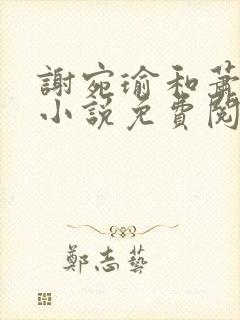 謝宛瑜和蕭
小說免費閱
鄭志藝